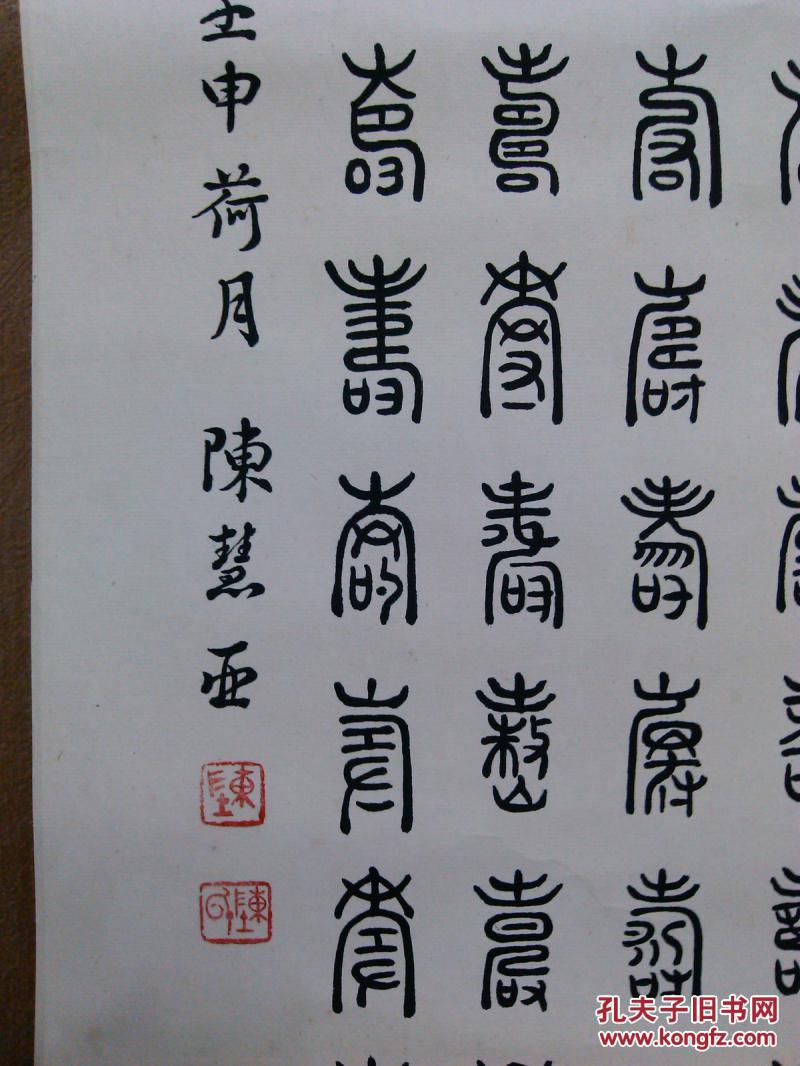 壽壽壽壽壽
壽壽壽壽壽
壽壽壽壽壽
壬申荷月 陳慧亞
孔夫子旧书网
www.kongfz.com